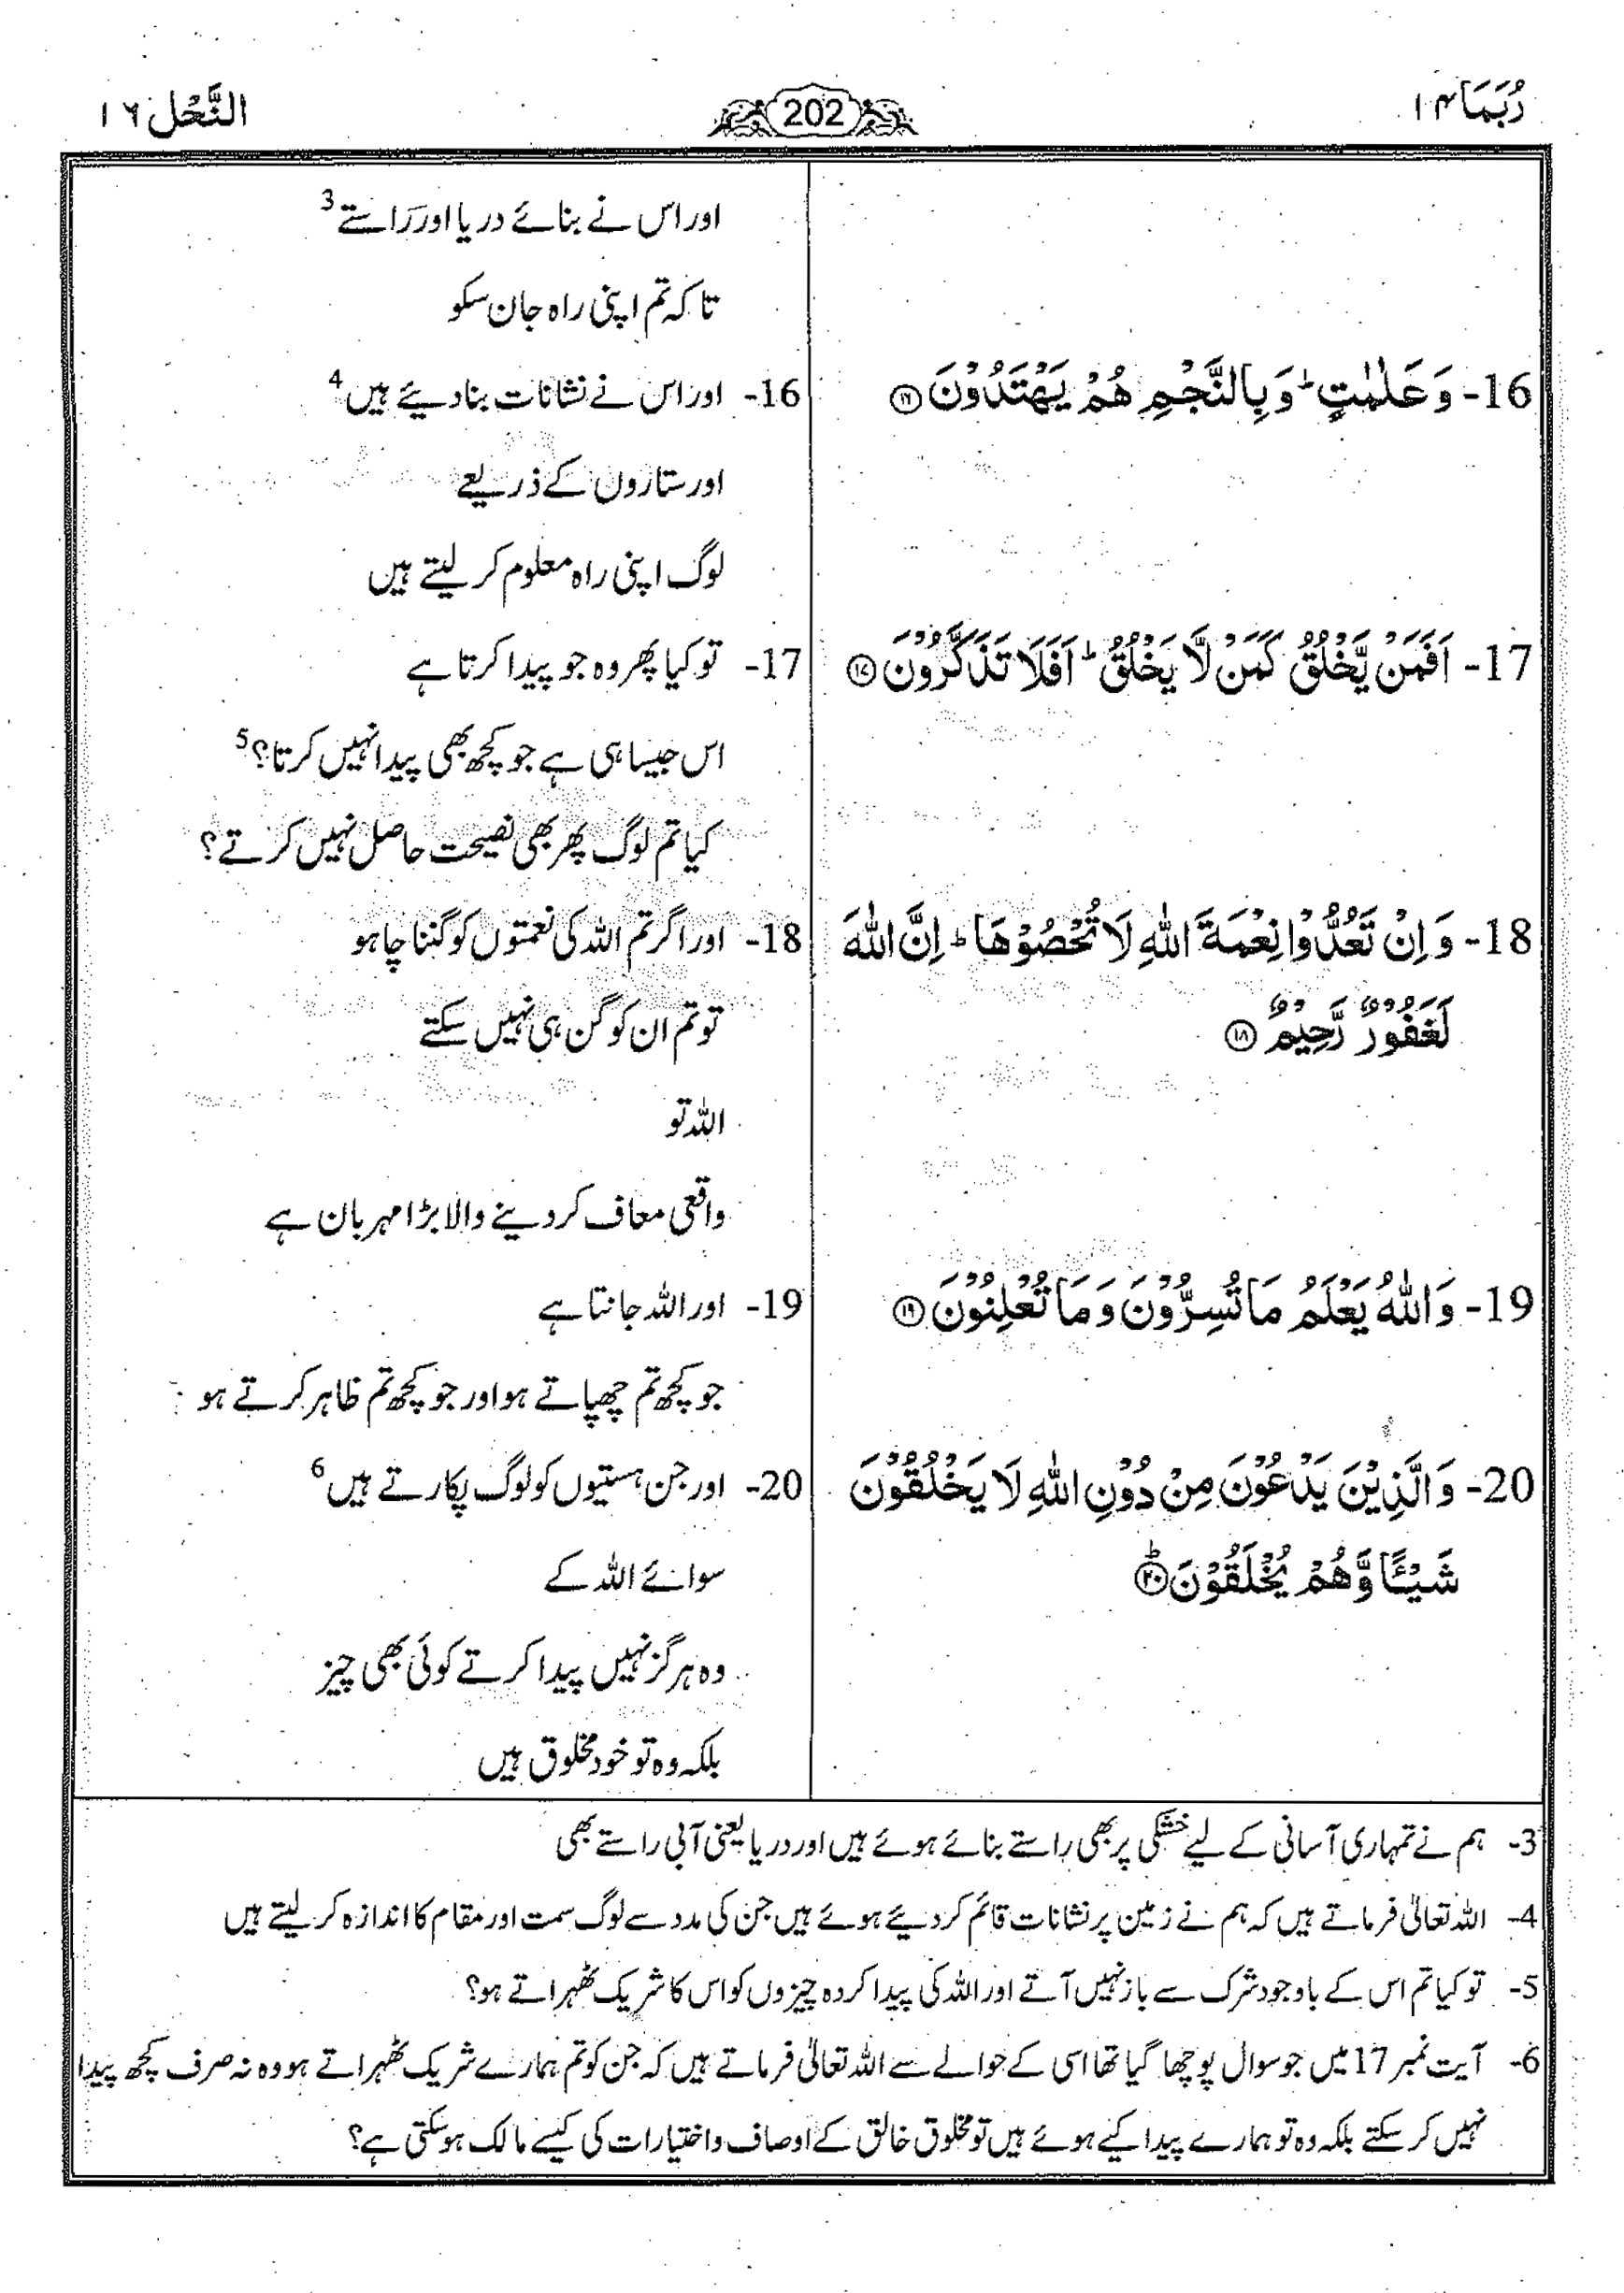 رُبَمَا ۱۴
202
النَّحْل ۱۶
اور اس نے بنائے دریا اور راستے 3
تاکہ تم اپنی راہ جان سکو
16- وَعَلٰمٰتٍ ؕ وَبِالنَّجْمِ هُمْ يَهْتَدُوْنَ ﴿۱۶﴾
16- اور اس نے نشانات بنا دیئے ہیں 4
اور ستاروں کے ذریعے
لوگ اپنی راہ معلوم کر لیتے ہیں
17- اَفَمَنْ يَّخْلُقُ كَمَنْ لَّا يَخْلُقُ ؕ اَفَلَا تَذَكَّرُوْنَ ﴿۱۷﴾
17- تو کیا پھر وہ جو پیدا کرتا ہے
اس جیسا ہی ہے جو کچھ بھی پیدا نہیں کرتا؟ 5
کیا تم لوگ پھر بھی نصیحت حاصل نہیں کرتے؟
18- وَ اِنْ تَعُدُّوْا نِعْمَةَ اللّٰهِ لَا تُحْصُوْهَا ؕ اِنَّ اللّٰهَ
لَغَفُوْرٌ رَّحِيْمٌ ﴿۱۸﴾
18- اور اگر تم اللہ کی نعمتوں کو گننا چاہو
تو تم ان کو گن ہی نہیں سکتے
اللہ تو
واقعی معاف کر دینے والا بڑا مہربان ہے
19- وَاللّٰهُ يَعْلَمُ مَا تُسِرُّوْنَ وَ مَا تُعْلِنُوْنَ ﴿۱۹﴾
19- اور اللہ جانتا ہے
جو کچھ تم چھپاتے ہو اور جو کچھ تم ظاہر کرتے ہو
20- وَالَّذِيْنَ يَدْعُوْنَ مِنْ دُوْنِ اللّٰهِ لَا يَخْلُقُوْنَ
شَيْـًٔا وَّهُمْ يُخْلَقُوْنَ ﴿۲۰﴾ؕ
20- اور جن ہستیوں کو لوگ پکارتے ہیں 6
سوائے اللہ کے
وہ ہرگز نہیں پیدا کرتے کوئی بھی چیز
بلکہ وہ تو خود مخلوق ہیں
3- ہم نے تمہاری آسانی کے لیے خشکی پر بھی راستے بنائے ہوئے ہیں اور دریا یعنی آبی راستے بھی
4- اللہ تعالیٰ فرماتے ہیں کہ ہم نے زمین پر نشانات قائم کر دیئے ہوئے ہیں جن کی مدد سے لوگ سمت اور مقام کا اندازہ کر لیتے ہیں
5- تو کیا تم اس کے باوجود شرک سے باز نہیں آتے اور اللہ کی پیدا کردہ چیزوں کو اس کا شریک ٹھہراتے ہو؟
6- آیت نمبر 17 میں جو سوال پوچھا گیا تھا اسی کے حوالے سے اللہ تعالیٰ فرماتے ہیں کہ جن کو تم ہمارے شریک ٹھہراتے ہو وہ نہ صرف کچھ پیدا
نہیں کر سکتے بلکہ وہ تو ہمارے پیدا کیے ہوئے ہیں تو مخلوق خالق کے اوصاف و اختیارات کی کیسے مالک ہو سکتی ہے؟